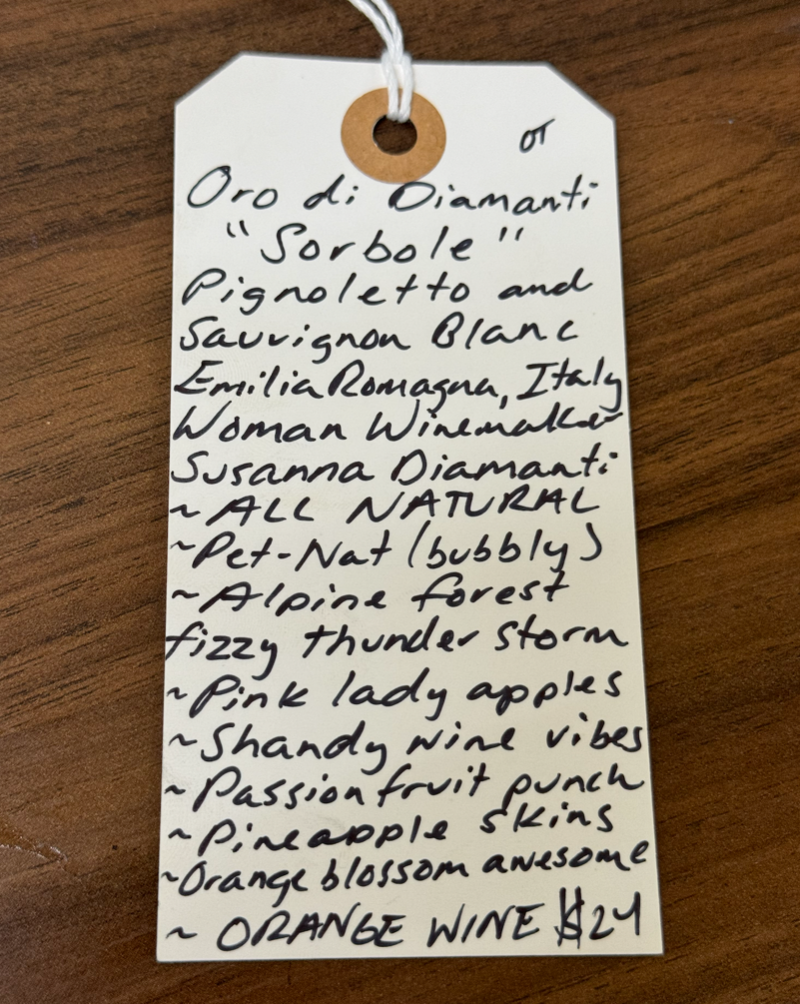 OT
Oro di Diamanti
"Sorbole"
Pignoletto and
Sauvignon Blanc
Emilia Romagna, Italy
Woman Winemaker
Susanna Diamanti
~ ALL NATURAL
~Pet-Nat (bubbly)
~Alpine forest
fizzy thunder storm
~Pink lady apples
~Shandy wine vibes
~Passionfruit punch
~Pineapple skins
~Orange blossom awesome
~ ORANGE WINE $24